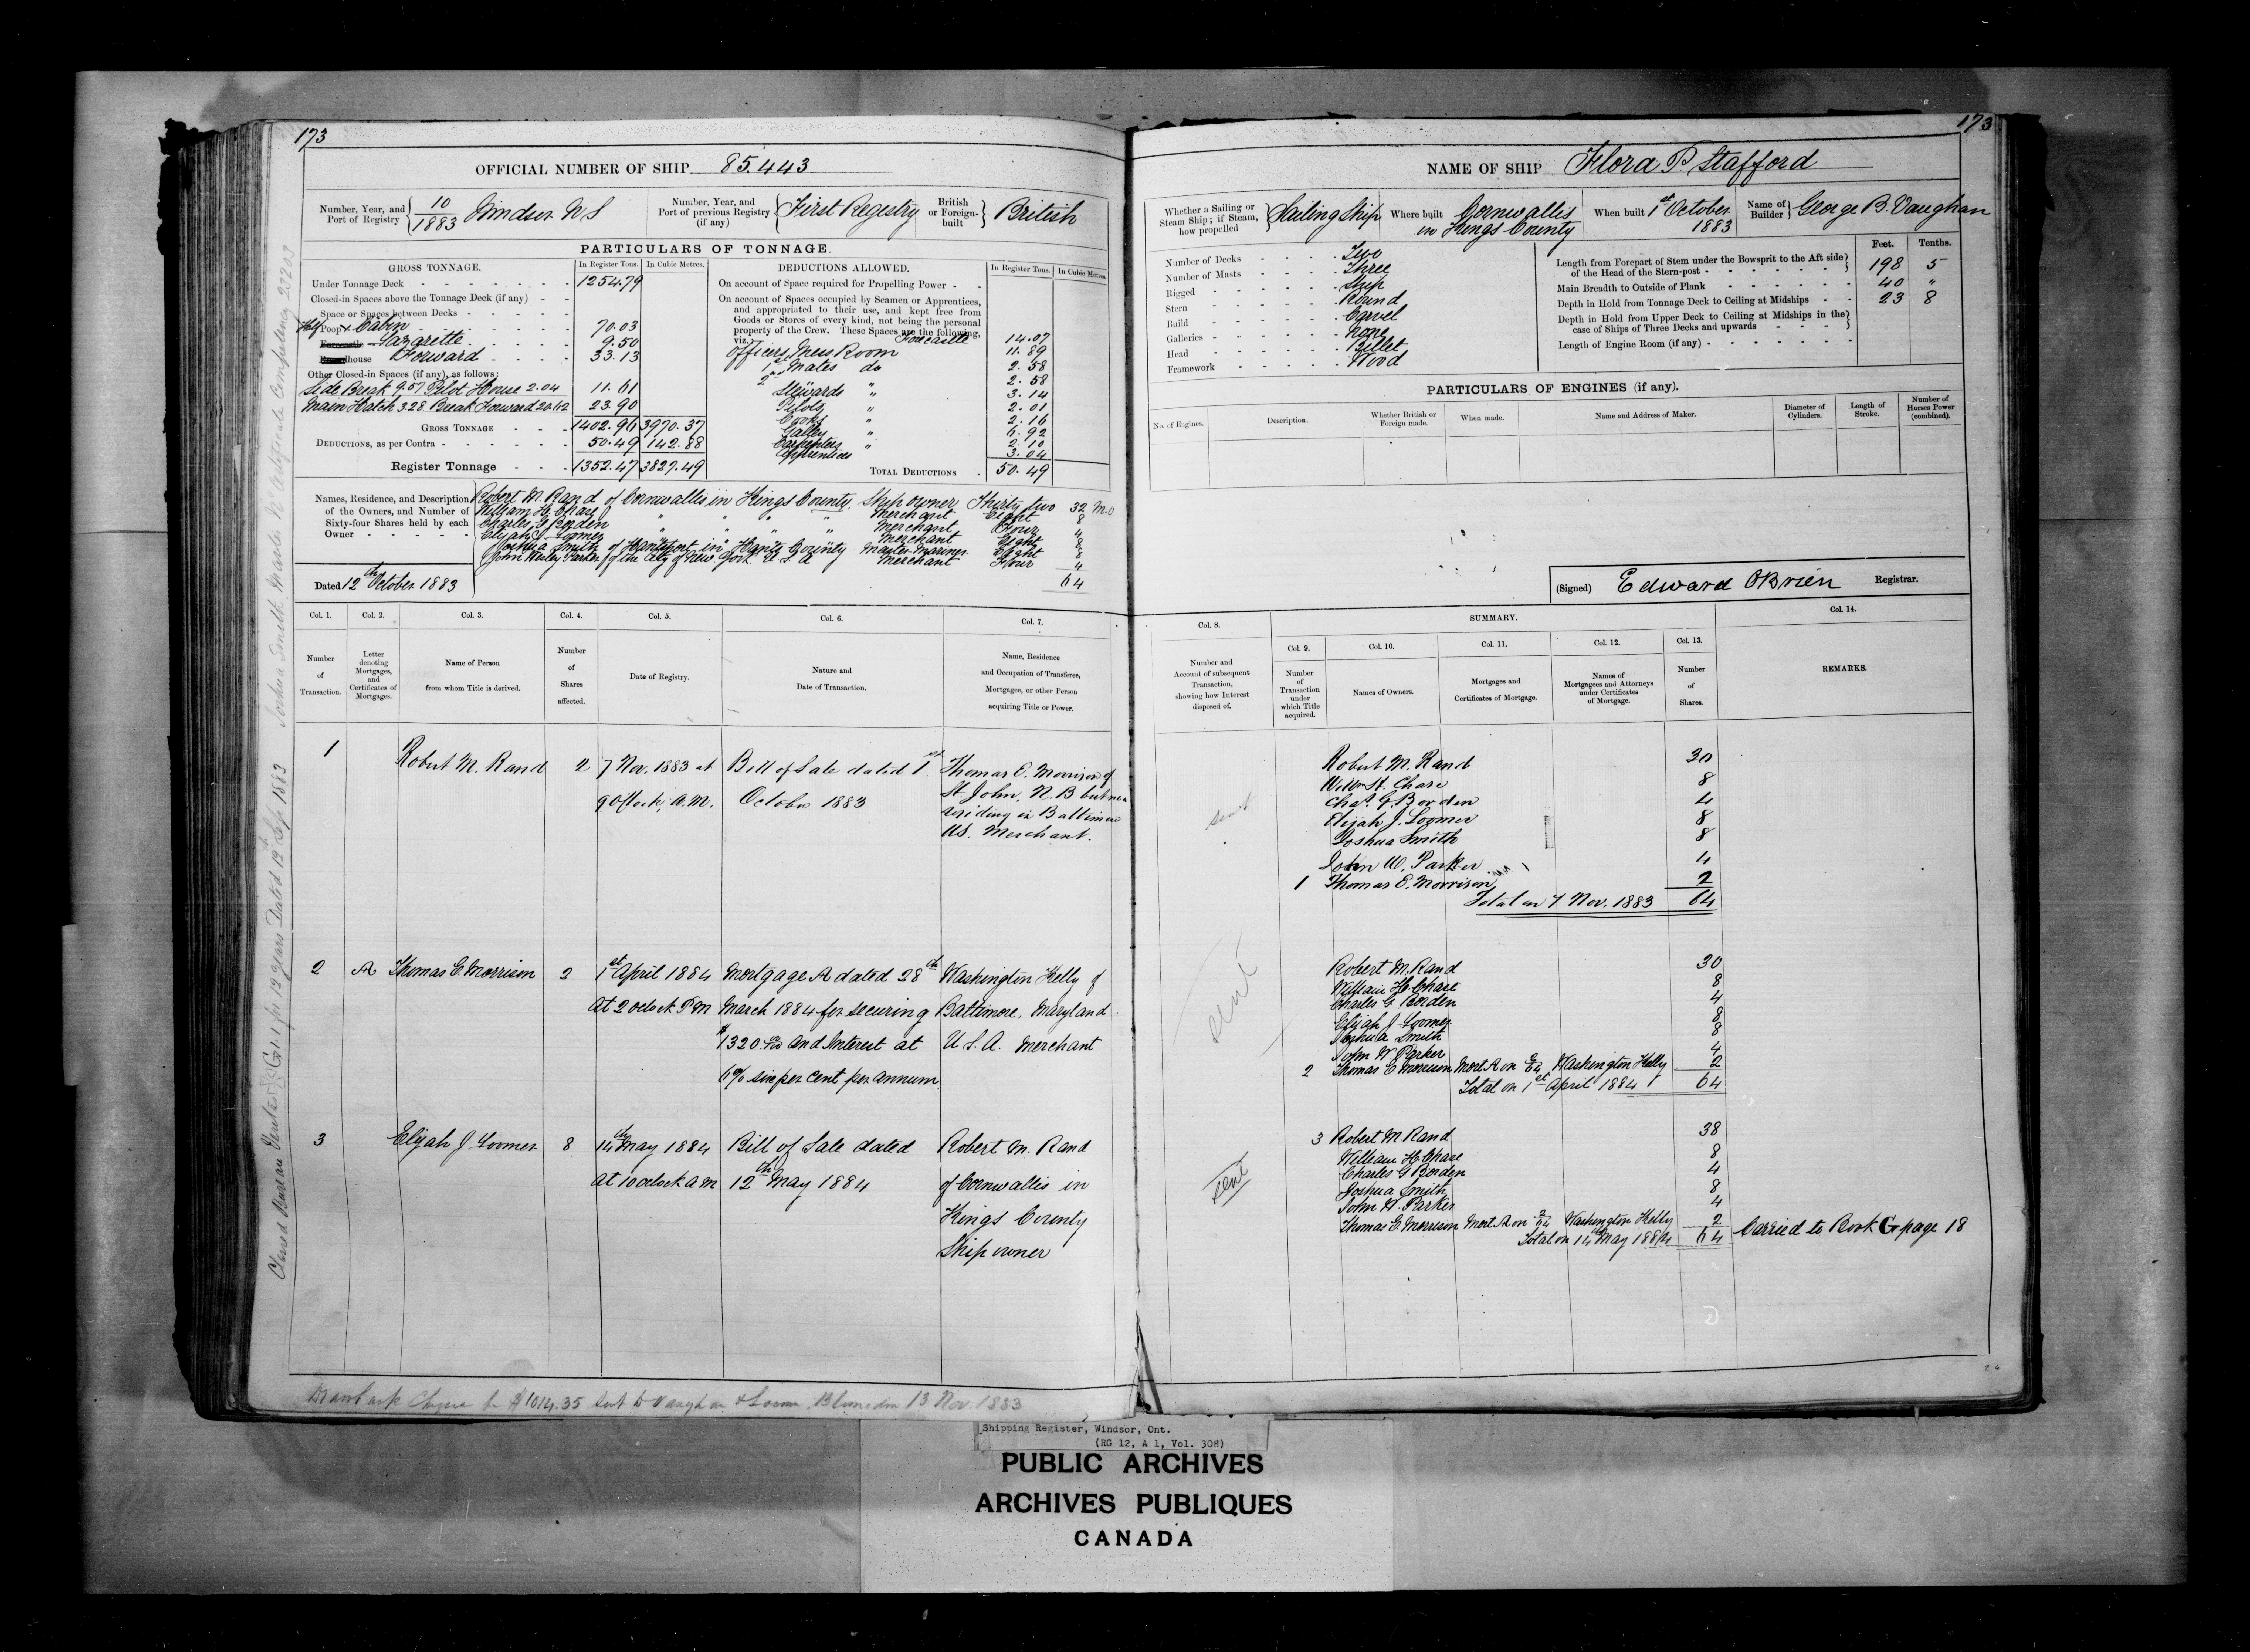 173
OFFICIAL NUMBER OF SHIP 85.443
Number, Year, and Port of Registry 10/1883 Windsor N S
Number, Year, and Port of previous Registry (if any) First Regestry
British or Foreign-built British
PARTICULARS OF TONNAGE.
GROSS TONNAGE. In Register Tons. In Cubic Metres.
Under Tonnage Deck 1254.79
Closed-in Spaces above the Tonnage Deck (if any)
Space or Spaces between Decks
Half Poop & Cabin 70.03
Lazarette 9.50
house Forward 33.13
Other Closed-in Spaces (if any), as follows:
Side Break 9.57 Pilot House 2.04 11.61
Main Hatch 3.28 Break Forward 20.62 23.90
GROSS TONNAGE 1402.96 3970.37
DEDUCTIONS, as per Contra 50.49 142.88
Register Tonnage 1352.47 3827.49
DEDUCTIONS ALLOWED. In Register Tons. In Cubic Metres.
On account of Space required for Propelling Power
On account of Spaces occupied by Seamen or Apprentices,
and appropriated to their use, and kept free from
Goods or Stores of every kind, not being the personal
property of the Crew. These Spaces are the following,
viz. Forecastle 14.07
Officers Mess Room 11.89
1st Mates do 2.58
2nd " 2.58
Stewards " 3.14
Pilots " 2.01
Cooks " 2.16
Galley 6.92
Carpenters " 2.10
Apprentices 3.04
TOTAL DEDUCTIONS 50.49
Names, Residence, and Description of the Owners, and Number of Sixty-four Shares held by each Owner
Robert M. Rand of Cornwallis in Kings County Ship owner Thirty two 32 M.O
William H. Chase " " " " Merchant Eight 8
Charles G Borden " " " " Merchant Four 4
Elijah J Loomer Merchant Eight 8
Joshua Smith of Hantsport in Hants County Master Mariner Eight 8
John Parker of the City of New York U S A Merchant Four 4
64
Dated 12th October 1883
Col. 1. Col. 2. Col. 3. Col. 4. Col. 5. Col. 6. Col. 7.
Number of Transaction.
Letter denoting Mortgages, and Certificates of Mortgages.
Name of Person from whom Title is derived.
Number of Shares affected.
Date of Registry.
Nature and Date of Transaction.
Name, Residence and Occupation of Transferee, Mortgagee, or other Person acquiring Title or Power.
1 Robert M. Rand 2 7 Nov. 1883 at Bill of Sale dated 1st Thomas E. Morrison of
9 O'clock, A.M. October 1883 St. John, N.B but now
residing in Baltimore
US. Merchant.
2 A Thomas E. Morrison 2 1st April 1884 Mortgage A dated 28th Washington Kelly of
At 2 oclock P M March 1884 for securing Baltimore, Maryland
$1320 and Interest at U S. A. Merchant
6% six per cent per annum
3 Elijah J Loomer 8 14th May 1884 Bill of Sale dated Robert M. Rand
At 10 oclock a m 12th May 1884 of Cornwallis in
Kings County
Ship owner
173
NAME OF SHIP Flora P. Stafford
Whether a Sailing or Steam Ship; if Steam, how propelled Sailing Ship
Where built Cornwallis in Kings County
When built 1st October 1883
Name of Builder George B. Vaughan
Number of Decks Two
Number of Masts Three
Rigged Ship
Stern Round
Build Carvel
Galleries None
Head Billet
Framework Wood
Feet. Tenths.
Length from Forepart of Stem under the Bowsprit to the Aft side of the Head of the Stern-post 198 5
Main Breadth to Outside of Plank 40 "
Depth in Hold from Tonnage Deck to Ceiling at Midships 23 8
Depth in Hold from Upper Deck to Ceiling at Midships in the case of Ships of Three Decks and upwards
Length of Engine Room (if any)
PARTICULARS OF ENGINES (if any).
No. of Engines. Description. Whether British or Foreign made. When made. Name and Address of Maker. Diameter of Cylinders. Length of Stroke. Number of Horses Power (combined).
(Signed) Edward OBrien Registrar.
Col. 8. SUMMARY. Col. 14.
Col. 9. Col. 10. Col. 11. Col. 12. Col. 13.
Number and Account of subsequent Transaction, showing how Interest disposed of.
Number of Transaction under which Title acquired.
Names of Owners.
Mortgages and Certificates of Mortgage.
Names of Mortgagees and Attorneys under Certificates of Mortgage.
Number of Shares.
REMARKS.
Robert M. Rand 30
Willm H. Chase 8
sent Chas. G. Borden 4
Elijah J. Loomer 8
Joshua Smith 8
John W. Parker 4
1 Thomas E. Morrison 2
Total on 7 Nov. 1883 64
Robert M. Rand 30
William H. Chase 8
sent Charles G Borden 4
Elijah J Loomer 8
Joshua Smith 8
John W Parker 4
2 Thomas E Morrison Mort A on 2/64 Washington Kelly 2
Total on 1st April 1884 64
3 Robert M. Rand 38
William H Chase 8
sent Charles G Borden 4
Joshua Smith 8
John W. Parker 4
Thomas E Morrison Mort A on 2/64 Washington Kelly 2
Total on 14th May 1884 64 Carried to Book G page 18
Shipping Register, Windsor, Ont.
(RG 12, A 1, Vol. 308)
PUBLIC ARCHIVES
ARCHIVES PUBLIQUES
CANADA